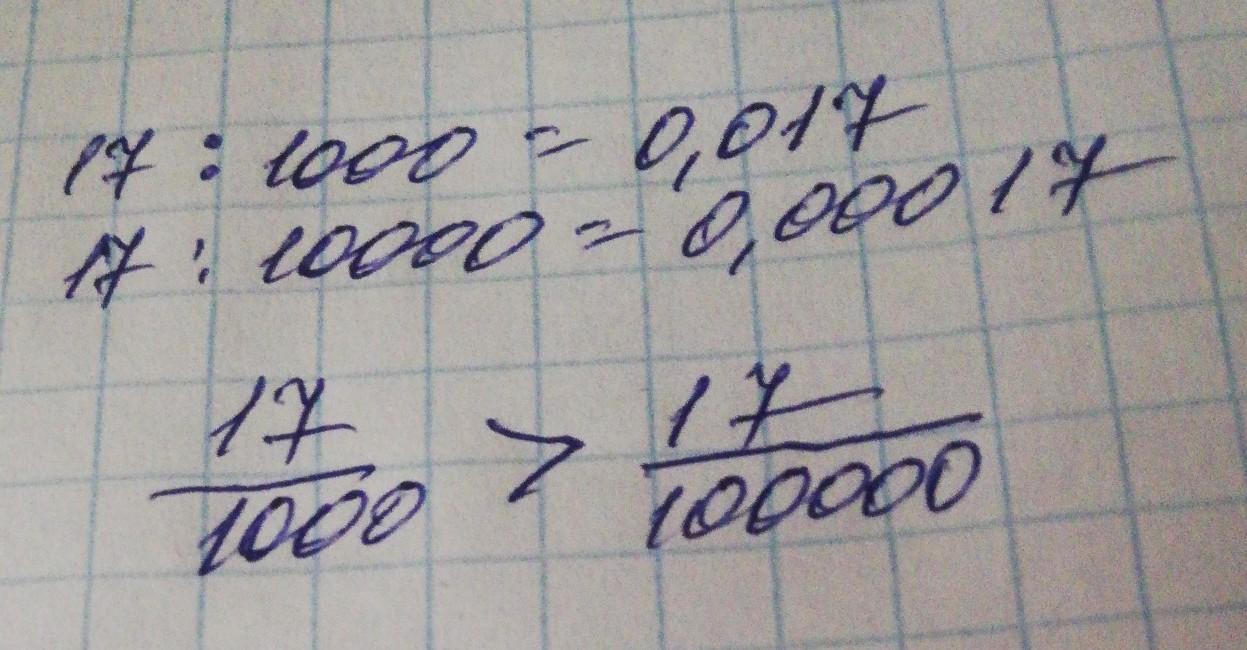 17 : 1000 = 0,017
17 : 10000 = 0,00017
17/1000 > 17/100000